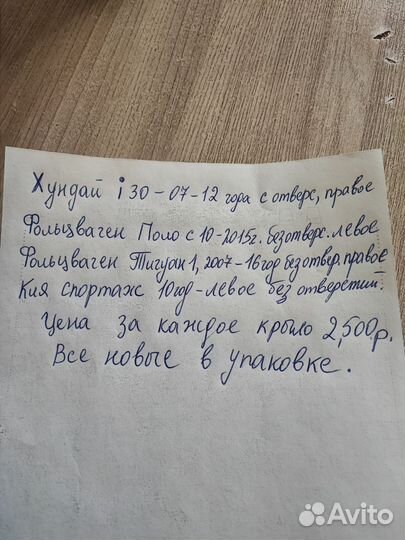 Хундай i 30-07-12 года с отверс, правое
Фольцваген Поло с 10-2015г. без отверс. левое
Фольцваген Тигуан 1, 2007-16 год без отвер. правое
Кия спортаж 10 год - левое без отверстий.
Цена за каждое крыло 2,500р.
Все новые в упаковке.
Avito